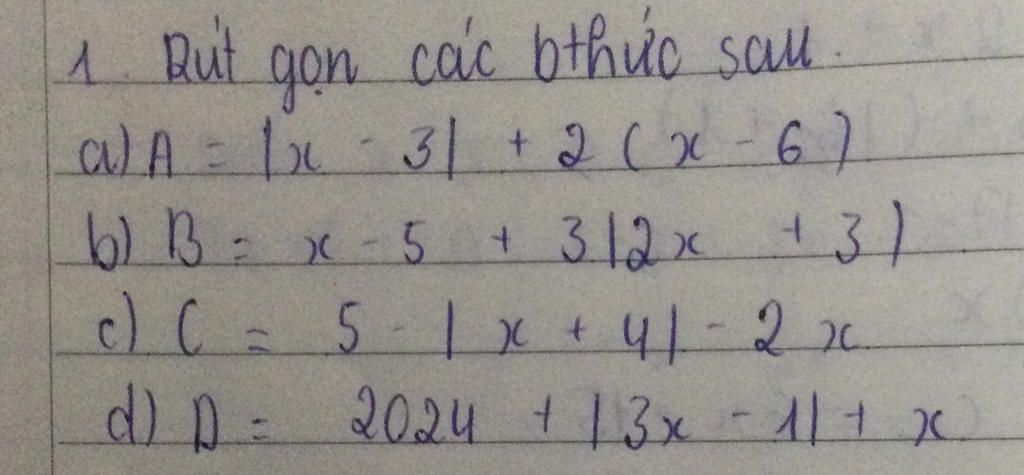 1. Rút gọn các bthức sau.
a) A = |x - 3| + 2 ( x - 6 )
b) B = x - 5 + 3 |2x + 3|
c) C = 5 - | x + 4 | - 2 x
d) D = 2024 + |3x - 1| + x